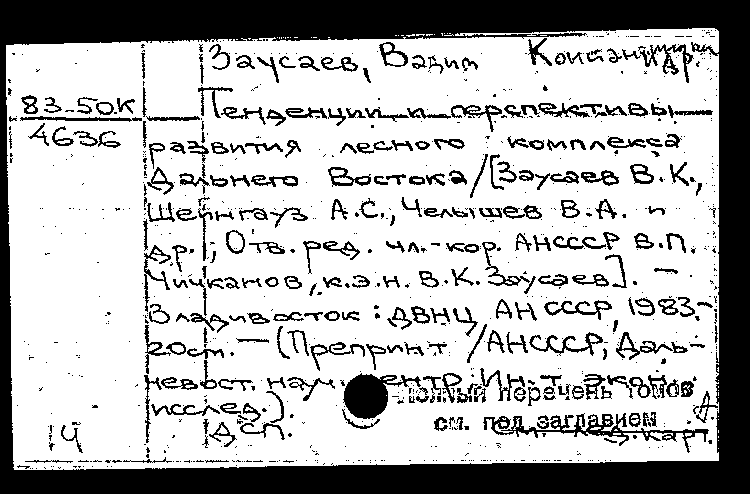 Заусаев, Вадим Константинович и др.
83-50К
Тенденции и перспективы
4636
развития лесного комплекса
Дальнего Востока / [Заусаев В.К.,
Шейнгауз А.С., Челышев В.А. и
др.; Отв. ред. чл.-кор. АНСССР В.П.
Чичканов, к.э.н. В.К. Заусаев]. —
Владивосток : ДВНЦ АН СССР, 1983.-
20см. — (Препринт / АНСССР, Даль-
невост. науч. центр, Ин-т экон.
исслед.).
Полный перечень томов
см. под заглавием
14
ДСП.
см. след. карт.